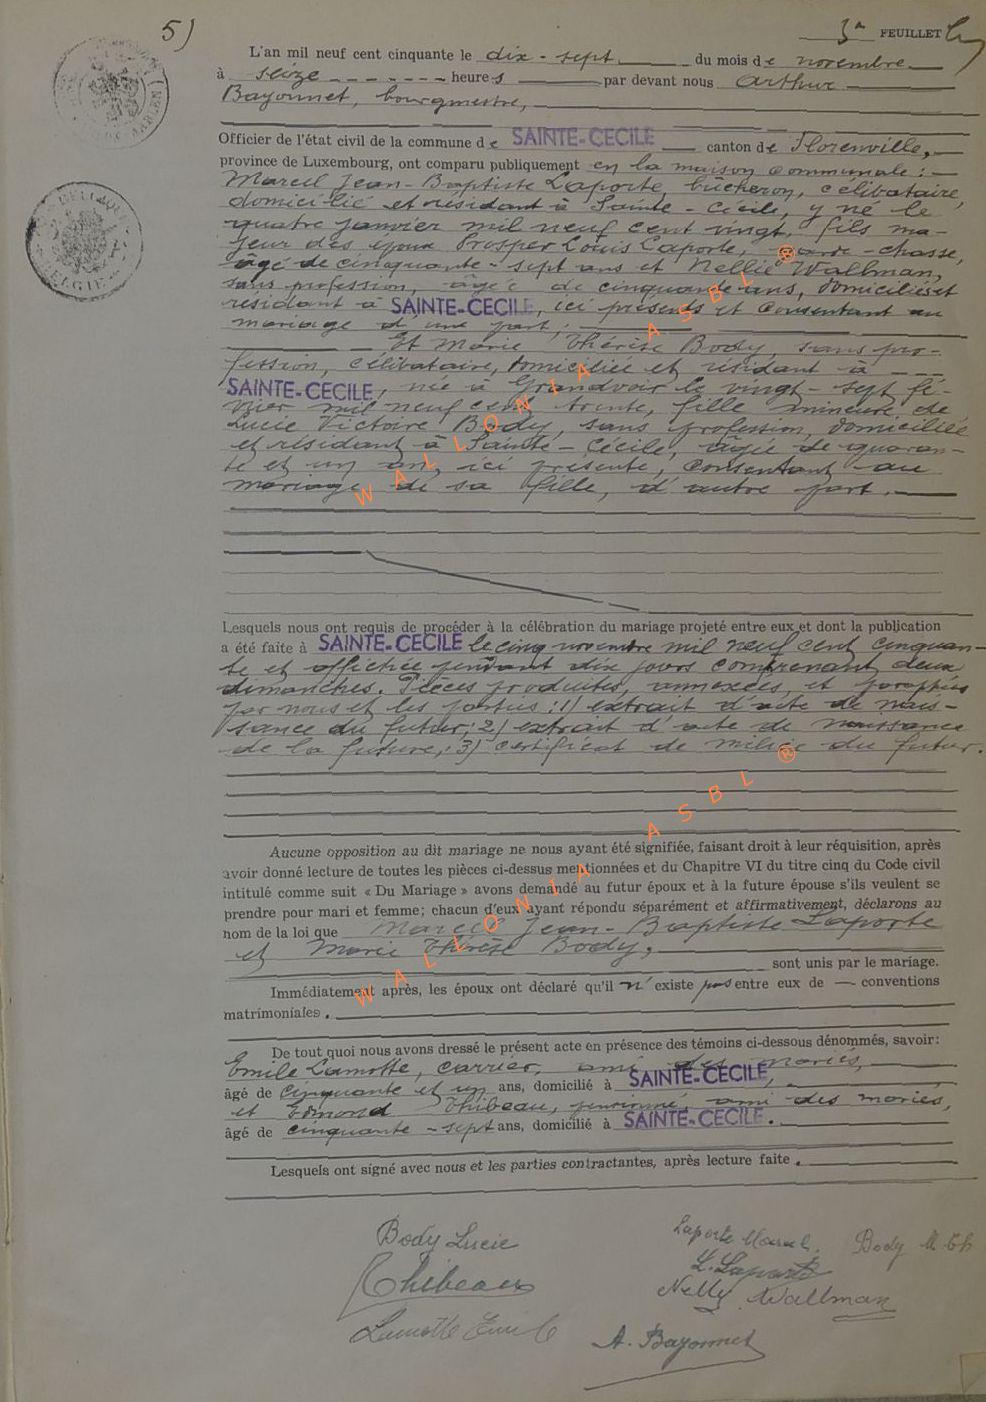 5)
3e FEUILLET
L'an mil neuf cent cinquante le dix-sept du mois de novembre
à seize heures par devant nous Arthur
Bayonnet, bourgmestre,
Officier de l'état civil de la commune de SAINTE-CECILE canton de Florenville,
province de Luxembourg, ont comparu publiquement en la maison communale :
Marcel Jean-Baptiste Laporte, bûcheron, célibataire,
domicilié et résidant à Sainte-Cécile, y né le
quatre janvier mil neuf cent vingt, fils ma-
jeur des époux Prosper Louis Laporte, garde-chasse,
âgé de cinquante-sept ans et Nellie Wallman,
sans profession, âgée de cinquante ans, domiciliés et
résidant à SAINTE-CECILE, ici présents et consentant au
mariage d'une part ;
Et Marie Thérèse Body, sans pro-
fession, célibataire, domiciliée et résidant à ---
SAINTE-CECILE, née à Grandvoir le vingt-sept fé-
vrier mil neuf cent trente, fille mineure de
Lucie Victoire Body, sans profession, domiciliée
et résidant à Sainte-Cécile, âgée de quaran-
te et un ans, ici présente, consentant au
mariage de sa fille, d'autre part.
Lesquels nous ont requis de procéder à la célébration du mariage projeté entre eux et dont la publication
a été faite à SAINTE-CECILE le cinq novembre mil neuf cent cinquan-
te et affichée pendant dix jours comprenant deux
dimanches. Pièces produites, annexées, et paraphées
par nous et les parties : 1) extrait d'acte de nais-
sance du futur ; 2) extrait d'acte de naissance
de la future ; 3) certificat de milice du futur.
Aucune opposition au dit mariage ne nous ayant été signifiée, faisant droit à leur réquisition, après
avoir donné lecture de toutes les pièces ci-dessus mentionnées et du Chapitre VI du titre cinq du Code civil
intitulé comme suit « Du Mariage » avons demandé au futur époux et à la future épouse s'ils veulent se
prendre pour mari et femme; chacun d'eux ayant répondu séparément et affirmativement, déclarons au
nom de la loi que Marcel Jean-Baptiste Laporte
et Marie Thérèse Body,
sont unis par le mariage.
Immédiatement après, les époux ont déclaré qu'il n'existe pas entre eux de — conventions
matrimoniales.
De tout quoi nous avons dressé le présent acte en présence des témoins ci-dessous dénommés, savoir:
Emile Lamotte, carrier, ami des mariés,
âgé de cinquante et un ans, domicilié à SAINTE-CECILE,
et Edmond Thibeau, pensionné, ami des mariés,
âgé de cinquante-sept ans, domicilié à SAINTE-CECILE.
Lesquels ont signé avec nous et les parties contractantes, après lecture faite.
Body Lucie
Laporte Marcel.
Body M. Th
Thibeau
L. Laporte
Nelly Wallman
Lamotte Emile
A. Bayonnet
WALLONIA ASBL ®
WALLONIA ASBL ®